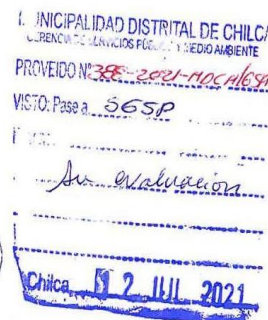 MUNICIPALIDAD DISTRITAL DE CHILCA
GERENCIA DE SERVICIOS PÚBLICOS Y MEDIO AMBIENTE
PROVEIDO Nº 388-2021-MDCH/GSP
VISTO: Pase a SGSP
Su evaluación
Chilca, 12 JUL 2021